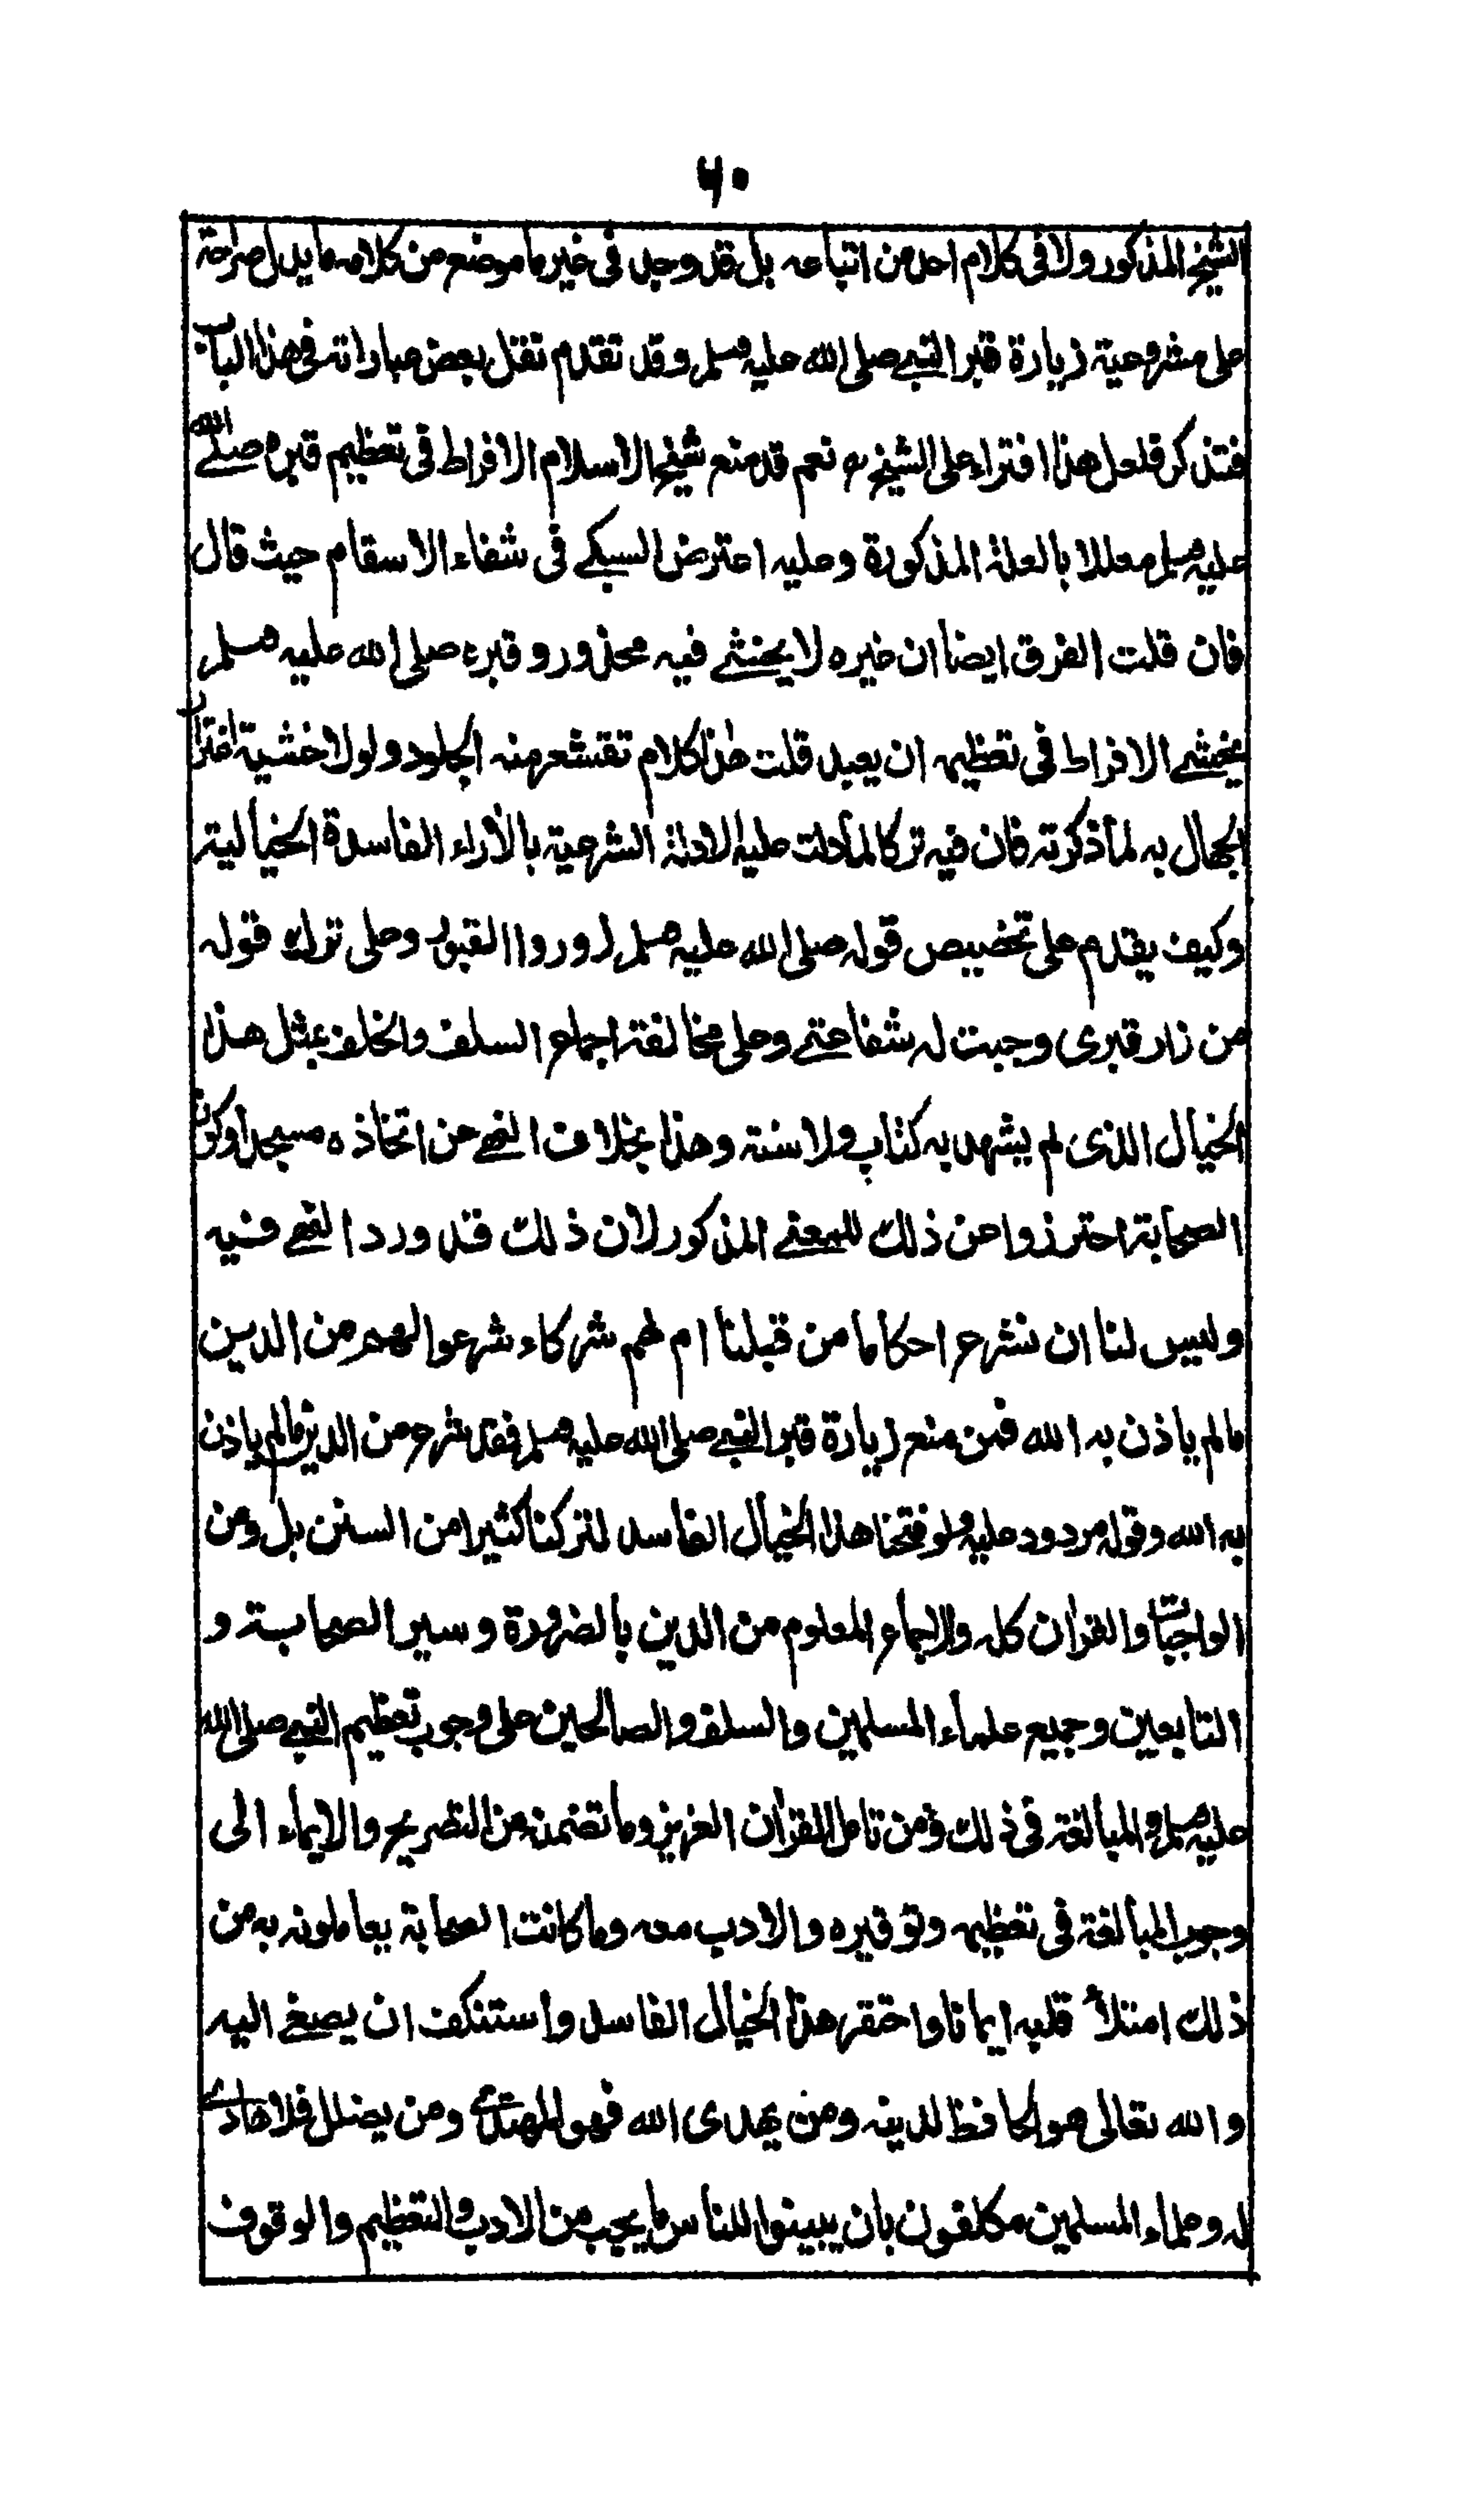 ۶۰
الشيخ المذكور ولا فى كلام احد من اتباعه بل قد وجد فى غير ما موضع من كلامه ما يدل صراحة
على مشروعية زيارة قبر النبى صلى الله عليه وسلم وقد تقدم نقل بعض عباراته فى هذا الباب
فتذكر فلعل هذا افتراء على الشيخ رح نعم قد منع شيخ الاسلام الافراط فى تعظيم قبره صلى الله
عليه وسلم معللا بالعلة المذكورة وعليه اعترض السبكى فى شفاء الاسقام حيث قال
فان قلت الفرق ايضا ان غيره لا يخشى فيه محذور وقبره صلى الله عليه وسلم
يخشى الافراط فى تعظيمه ان يعبد قلت هذا كلام تقشعر منه الجلود ولولا خشية اغترار
الجهال به لما ذكرته فان فيه تركا لما دلت عليه الادلة الشرعية بالآراء الفاسدة الخيالية
وكيف يقدم على تخصيص قوله صلى الله عليه وسلم زوروا القبور وعلى ترك قوله
من زار قبرى وجبت له شفاعتى وعلى مخالفة اجماع السلف والخلف بمثل هذا
الخيال الذى لم يشهد به كتاب ولا سنة وهذا بخلاف النهى عن اتخاذه مسجدا وكون
الصحابة احترزوا عن ذلك للمعنى المذكور لان ذلك قد ورد النهى فيه
وليس لنا ان نشرع احكاما من قبلنا ام لهم شركاء شرعوا لهم من الدين
مالم ياذن به الله فمن منع زيارة قبر النبى صلى الله عليه وسلم فقد شرع من الدين مالم ياذن
به الله وقوله مردود عليه ولو فتحنا هذا الخيال الفاسد لتركنا كثيرا من السنن بل ومن
الواجبات والقرآن كله والاجماع المعلوم من الدين بالضرورة وسير الصحابة و
التابعين وجميع علماء المسلمين والسلف والصالحين على وجوب تعظيم النبى صلى الله
عليه وسلم والمبالغة فى ذلك ومن تامل القرآن العزيز وما تضمنه من التصريح والايماء الى
وجوب المبالغة فى تعظيمه وتوقيره والادب معه وما كانت الصحابة يعاملونه به من
ذلك امتلأ قلبه ايمانا واحتقر هذا الخيال الفاسد واستنكف ان يصغى اليه
والله تعالى هو الحافظ لدينه ومن يهدى الله فهو المهتدى ومن يضلل فلا هادى
له وعلماء المسلمين مكلفون بان يبينوا للناس ما يجب من الادب والتعظيم والوقوف